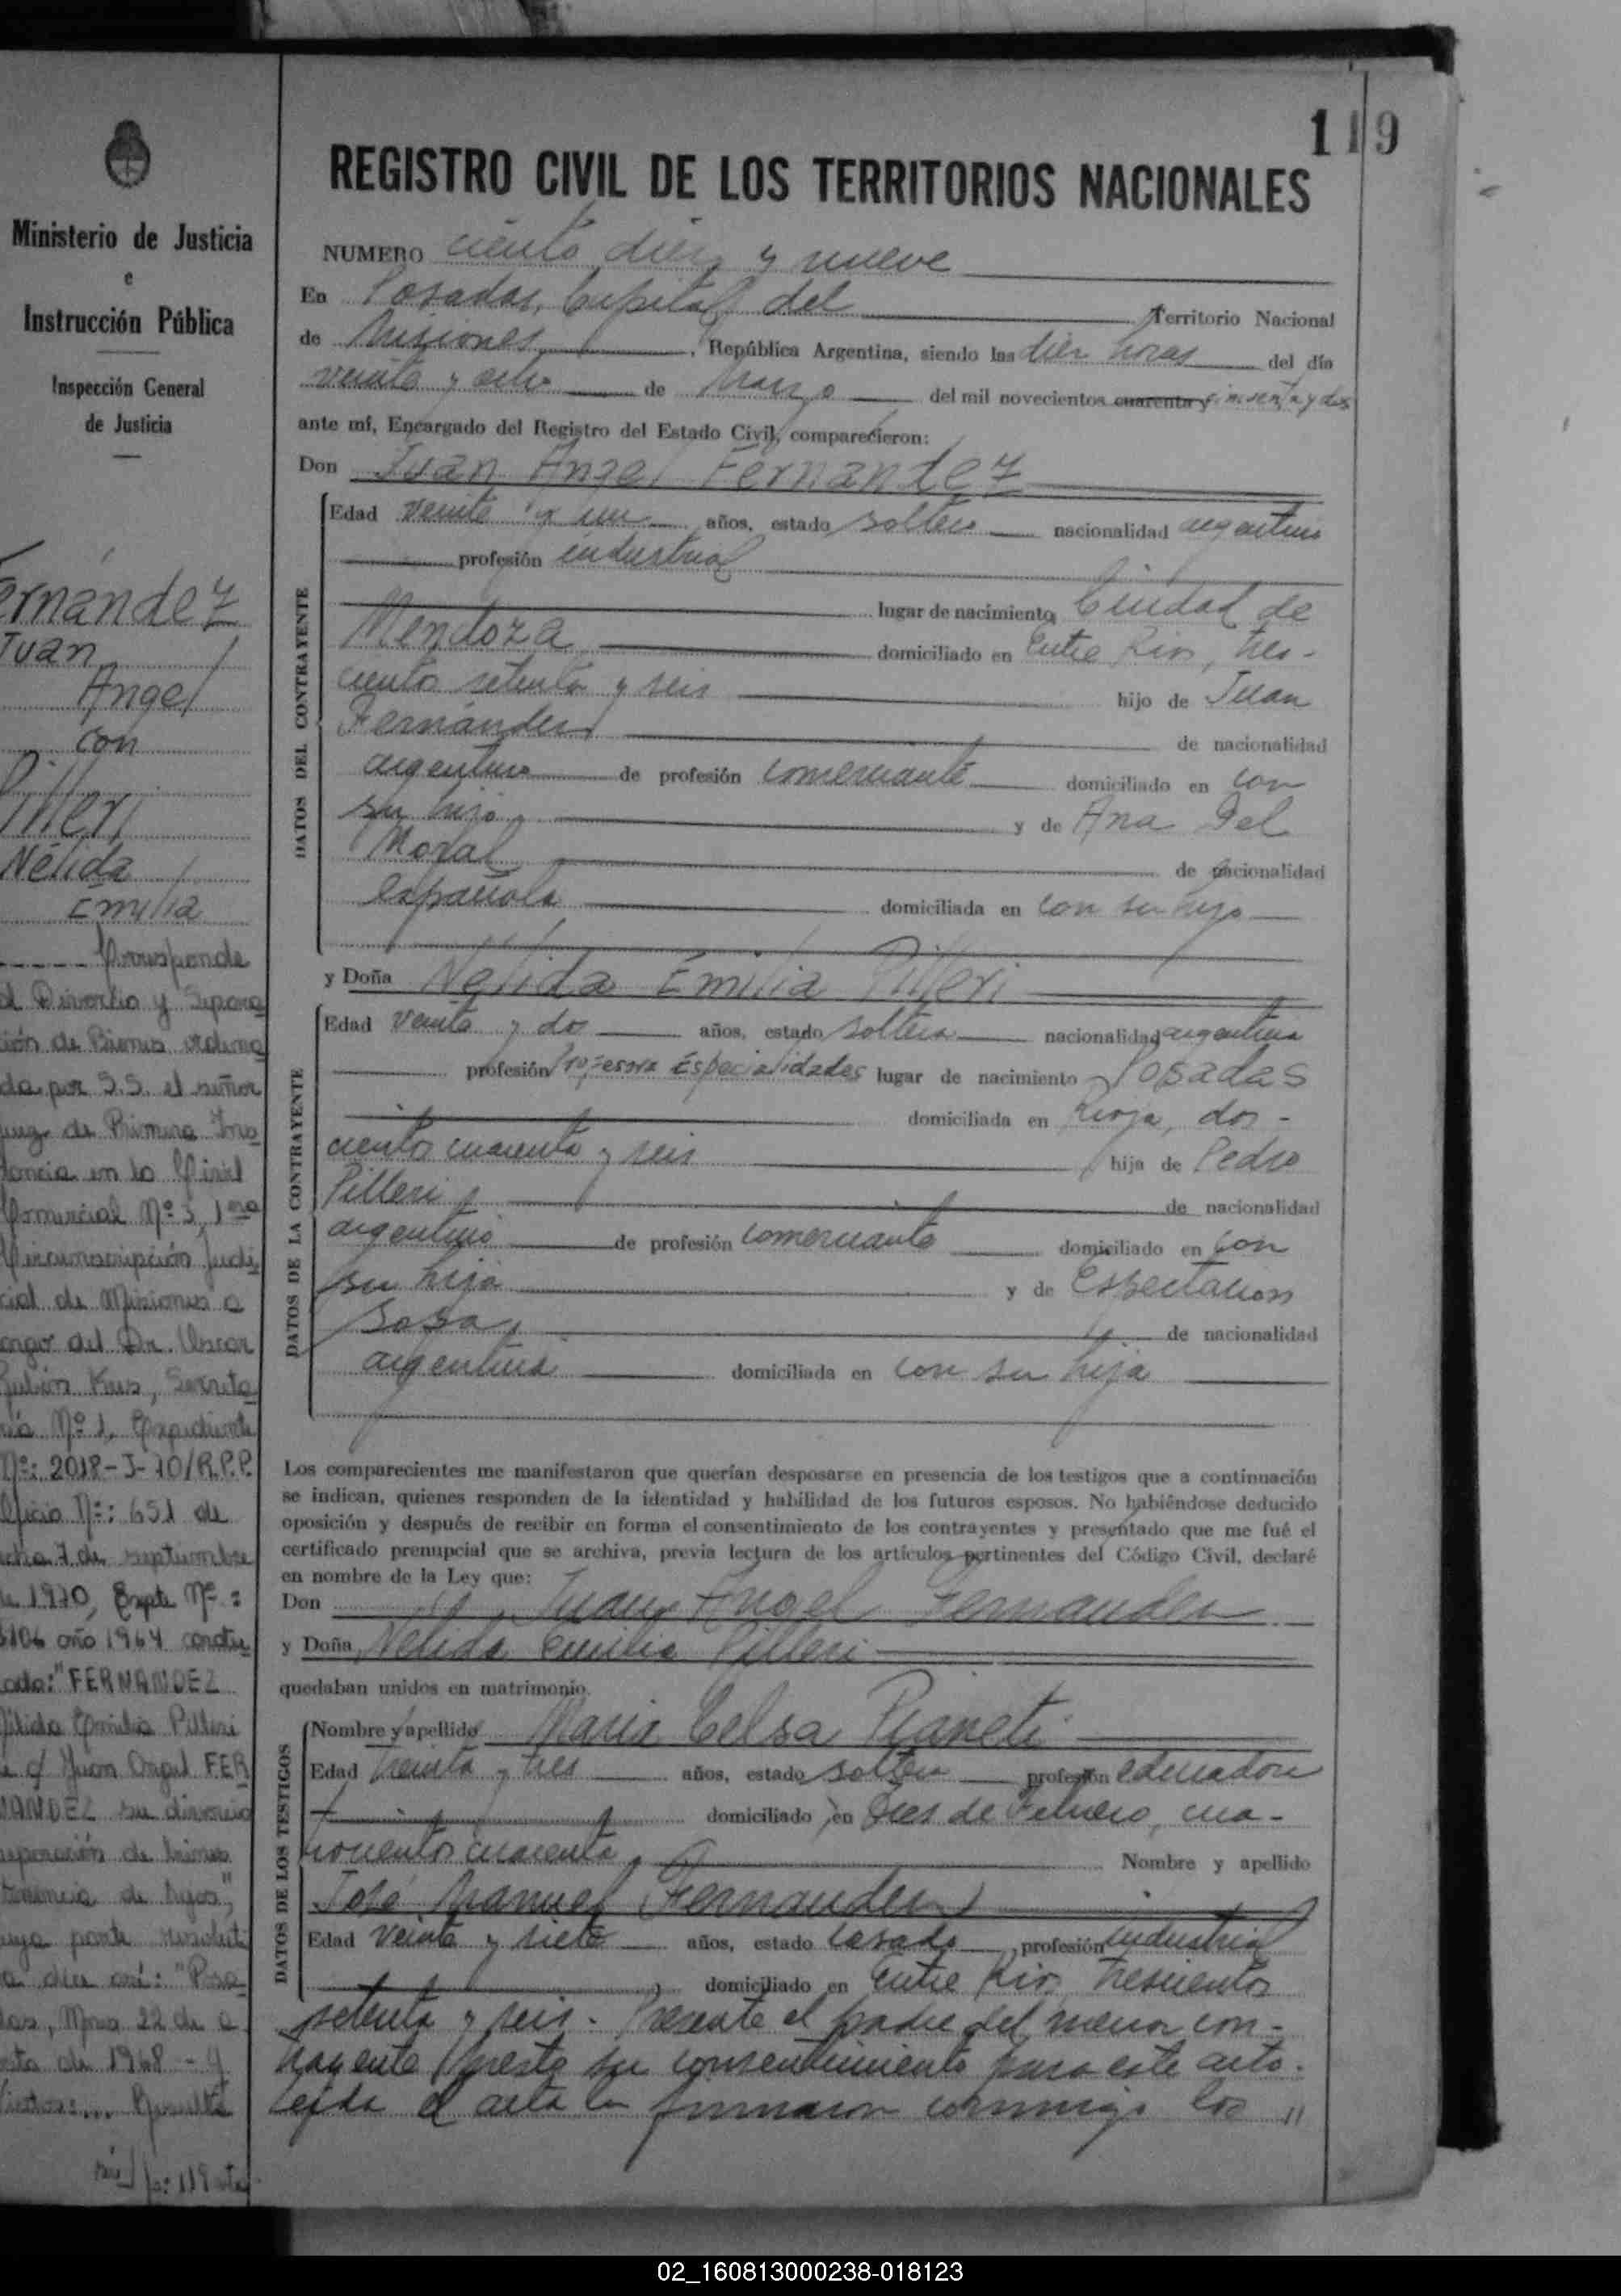 119
Ministerio de Justicia
e
Instrucción Pública
Inspección General
de Justicia
ernández
Juan
Angel
con
Pilleri
Nélida
Emilia
Corresponde
al Divorcio y Separa
ción de Bienes ordena
da por S.S. el señor
Juez de Primera Ins
tancia en lo Civil
Comercial Nº 3, 1ra
Circunscripción Judi
cial de Misiones a
cargo del Dr. Oscar
Julián Secreta
ría Nº 1, Expediente
Nº: 2018-J-70/R.P.P.
Oficio Nº: 651 de
fecha 7 de septiembre
de 1970, Expte Nº:
año 1964 caratu
lado: "FERNANDEZ
Nélida Emilia Pilleri
de c/ Juan Angel FER
NANDEZ su divorcio
separación de bienes
tenencia de hijos",
cuya parte resoluti
va dice así: "Posa
das, Mnes 22 de a
de 1968 - y
Vistos:... Resulta
REGISTRO CIVIL DE LOS TERRITORIOS NACIONALES
NUMERO ciento diez y nueve
En Posadas, Capital del Territorio Nacional
de Misiones, República Argentina, siendo las diez horas del día
veinte y ocho de Marzo del mil novecientos cuarenta y cincuenta y dos
ante mí, Encargado del Registro del Estado Civil, comparecieron:
Don Juan Angel Fernandez
DATOS DEL CONTRAYENTE
Edad veinte y un años, estado soltero nacionalidad argentino
profesión industrial
lugar de nacimiento Ciudad de
Mendoza domiciliado en Entre Rios, tres-
cientos setenta y seis hijo de Juan
Fernández de nacionalidad
argentino de profesión comerciante domiciliado en con
su hijo y de Ana Del
Moral de nacionalidad
española domiciliada en con su hijo
y Doña Nélida Emilia Pilleri
DATOS DE LA CONTRAYENTE
Edad veinte y dos años, estado soltera nacionalidad argentina
profesión Profesora Especialidades lugar de nacimiento Posadas
domiciliada en Rioja, dos-
cientos cuarenta y seis hija de Pedro
Pilleri, de nacionalidad
argentino de profesión comerciante domiciliado en con
su hija y de Espectacion
Sosa, de nacionalidad
argentina domiciliada en con su hija
Los comparecientes me manifestaron que querían desposarse en presencia de los testigos que a continuación
se indican, quienes responden de la identidad y habilidad de los futuros esposos. No habiéndose deducido
oposición y después de recibir en forma el consentimiento de los contrayentes y presentado que me fué el
certificado prenupcial que se archiva, previa lectura de los artículos pertinentes del Código Civil, declaré
en nombre de la Ley que:
Don Juan Angel Fernandez
y Doña Nélida Emilia Pilleri
quedaban unidos en matrimonio.
DATOS DE LOS TESTIGOS
Nombre y apellido Maria Celsa Pianeti
Edad treinta y tres años, estado soltera profesión educadora
domiciliado en Tres de Febrero, cua-
trocientos cuarenta, Nombre y apellido
José Manuel Fernandez
Edad veinte y siete años, estado casado, profesión industrial
domiciliado en Entre Rios, trescientos
setenta y seis. Presente el padre del menor con-
trayente presta su consentimiento para este acto.
Leída el acta la firmaron conmigo los "
02_160813000238-018123